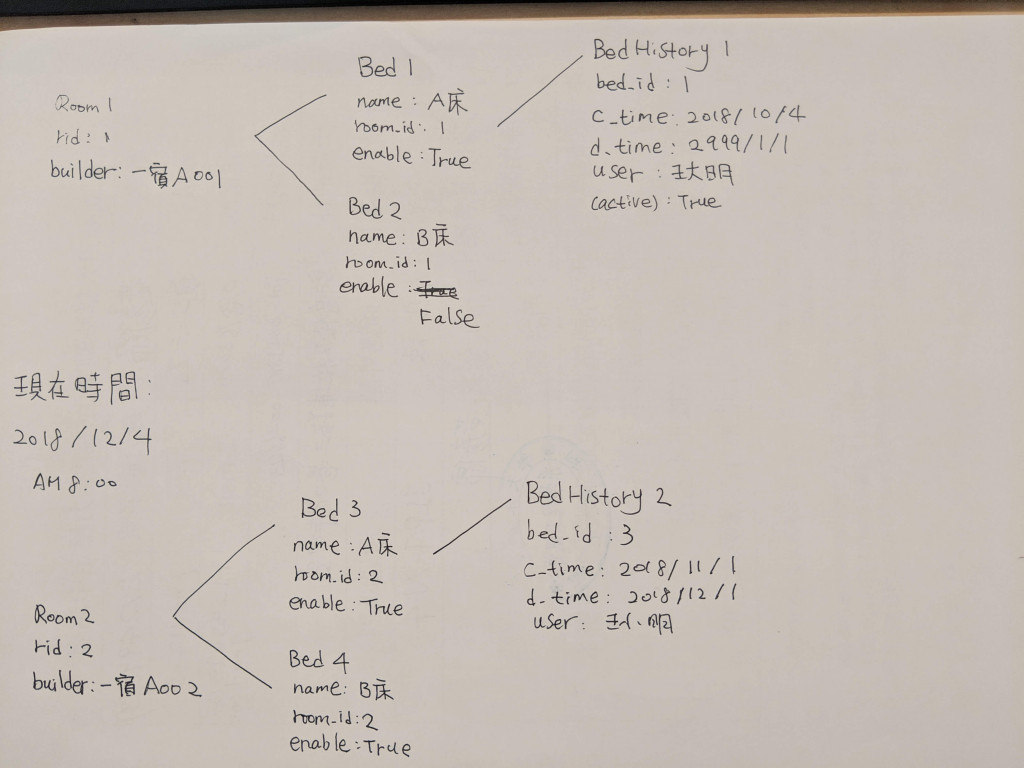 Room 1
rid: 1
builder: 一宿A001
Bed 1
name: A床
room_id: 1
enable: True
Bed 2
name: B床
room_id: 1
enable: True
False
Bed History 1
bed_id: 1
c_time: 2018/10/4
d_time: 2999/1/1
user: 王大明
(active): True
現在時間:
2018/12/4
AM 8:00
Room 2
rid: 2
builder: 一宿A002
Bed 3
name: A床
room_id: 2
enable: True
Bed 4
name: B床
room_id: 2
enable: True
Bed History 2
bed_id: 3
c_time: 2018/11/1
d_time: 2018/12/1
user: 王小明